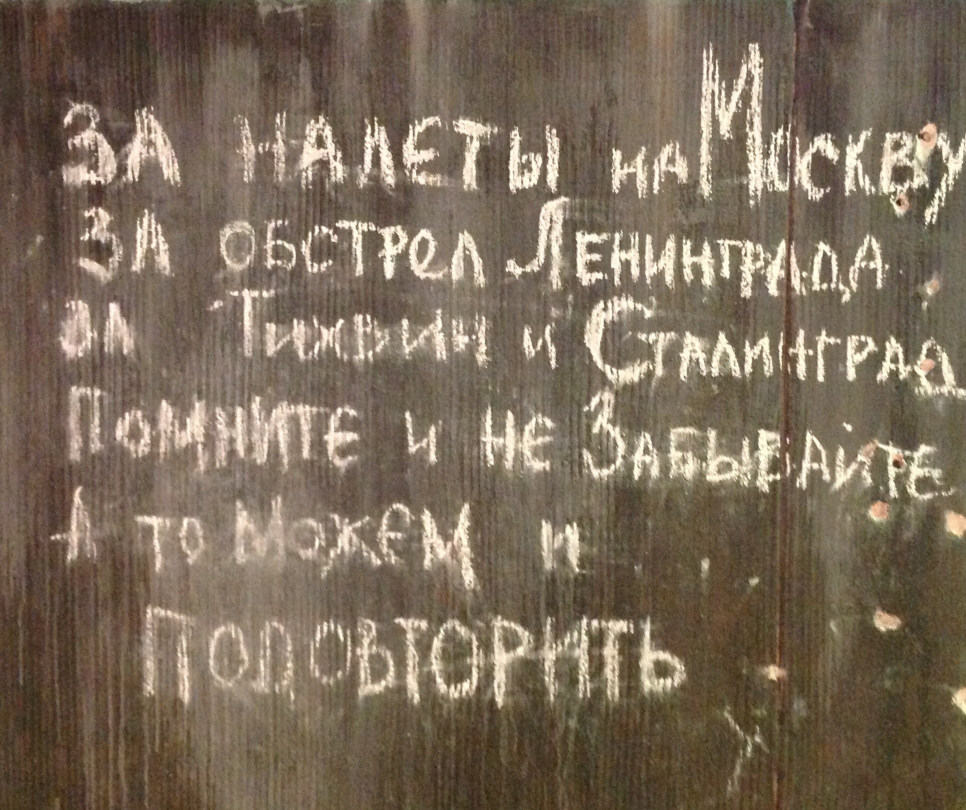 ЗА НАЛЕТЫ НА МОСКВУ
ЗА ОБСТРЕЛ ЛЕНИНГРАДА
ЗА ТИХВИН И СТАЛИНГРАД
ПОМНИТЕ И НЕ ЗАБЫВАЙТЕ
А ТО МОЖЕМ И
ПОПОВТОРИТЬ